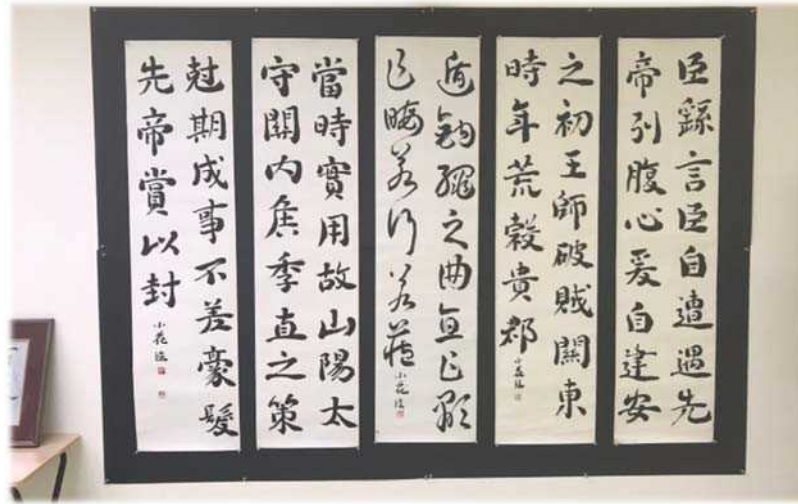 臣繇言臣自遭遇先
帝列腹心爰自建安
之初王師破賊關東
時年荒穀貴郡
小花臨
遁鉤繩之曲直乍顯
乍晦若行若藏
小花臨
當時實用故山陽太
守關內侯季直之策
尅期成事不差豪髮
先帝賞以封
小花臨